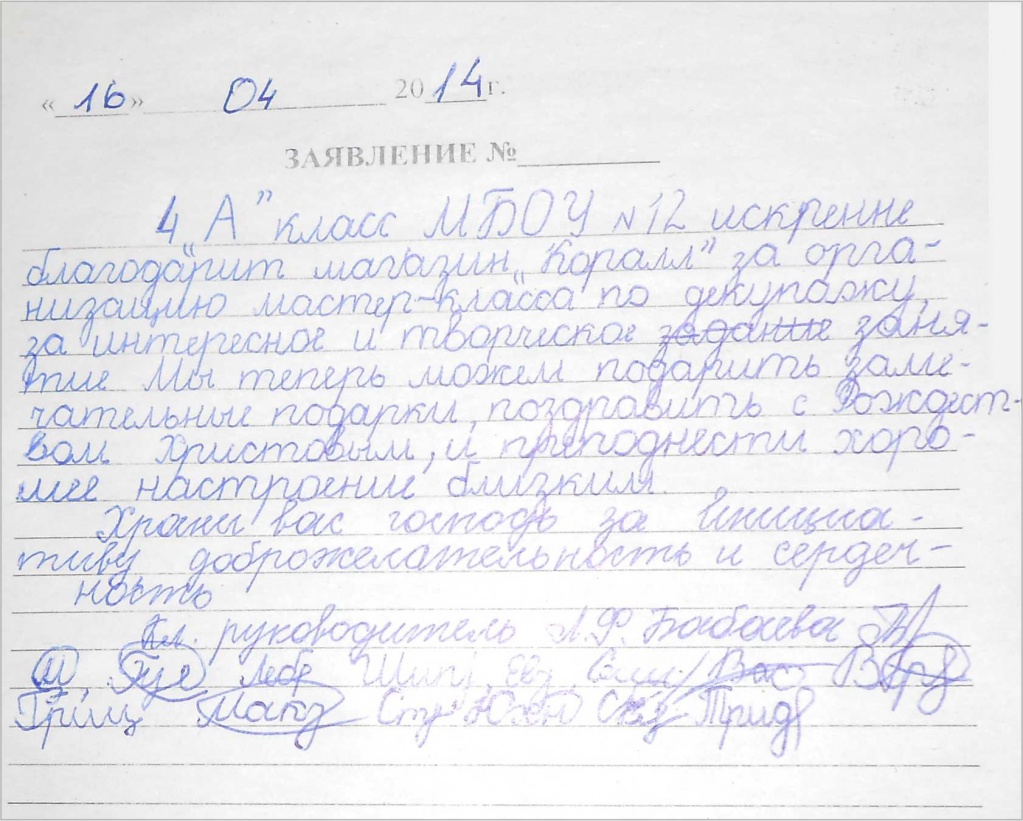 «16» 04 2014г.
ЗАЯВЛЕНИЕ №
4 „А” класс МБОУ №12 искренне
благодарит магазин „Коралл” за орга-
низацию мастер-класса по декупажу,
за интересное и творческое задание заня-
тие Мы теперь можем подарить заме-
чательные подарки, поздравить с Рождест-
вом Христовым, и преподнести хоро-
шее настроение близким.
Храни вас господь за инициа-
тиву доброжелательность и сердеч-
ность
Кл. руководитель Л.Ф. Бабаева
Гриц Макз Стр Южн